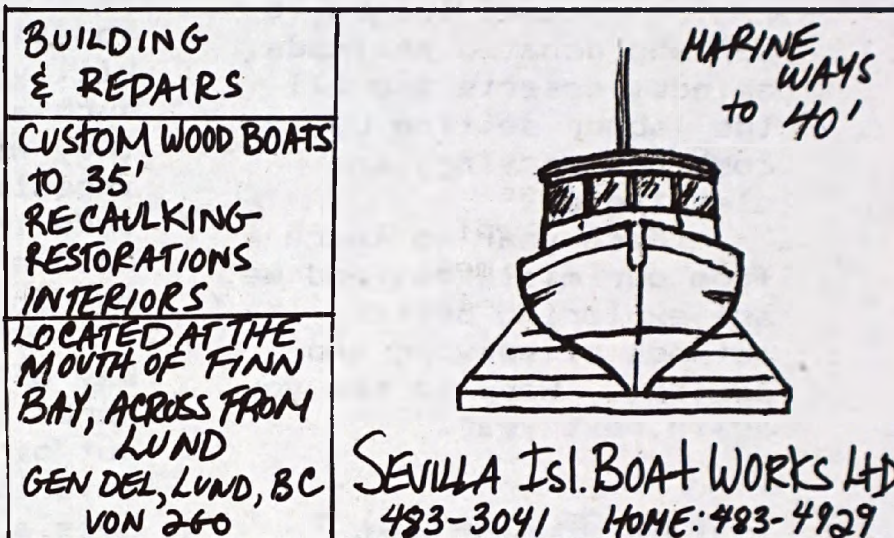 BUILDING
& REPAIRS
CUSTOM WOOD BOATS
TO 35'
RECAULKING
RESTORATIONS
INTERIORS
LOCATED AT THE
MOUTH OF FINN
BAY, ACROSS FROM
LUND
GEN DEL, LUND, BC
VON 2G0
MARINE
WAYS
to 40'
SEVILLA Isl. BOAt WORKS LtD
483-3041 HOME: 483-4929